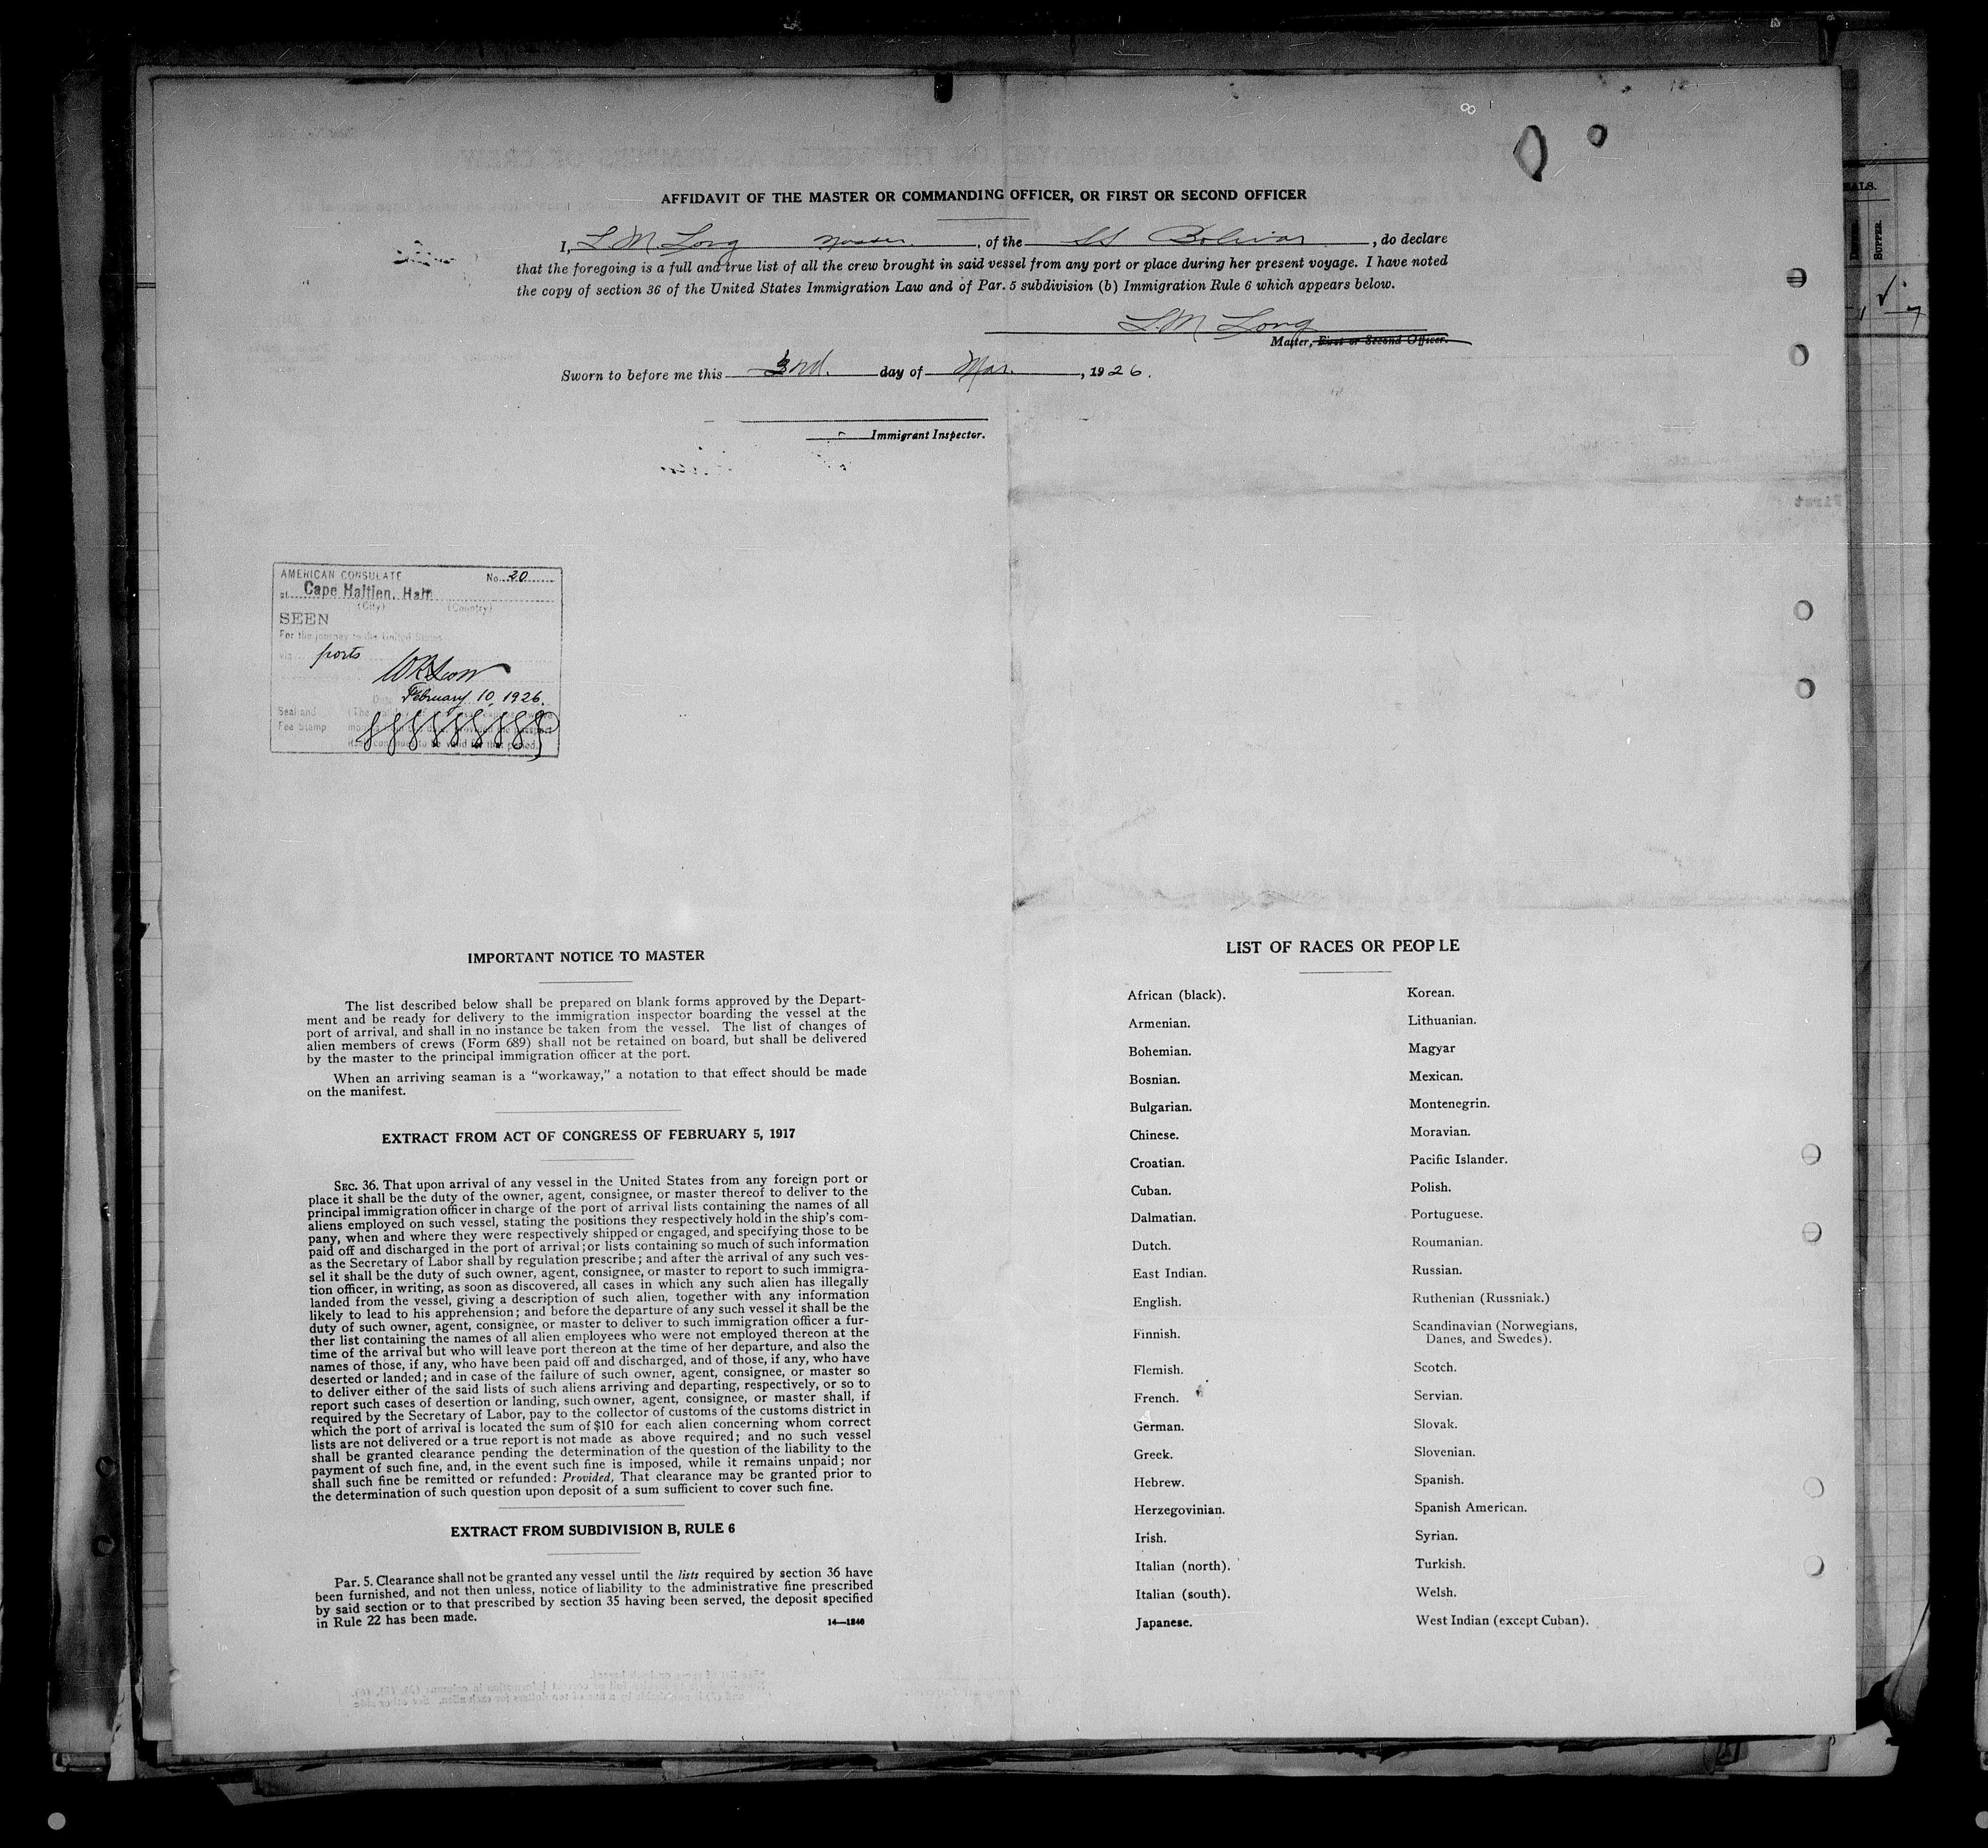 AFFIDAVIT OF THE MASTER OR COMMANDING OFFICER, OR FIRST OR SECOND OFFICER
I, L. M. Long Master, of the SS Bolivar, do declare
that the foregoing is a full and true list of all the crew brought in said vessel from any port or place during her present voyage. I have noted
the copy of section 36 of the United States Immigration Law and of Par. 5 subdivision (b) Immigration Rule 6 which appears below.
L. M Long
Master, First or Second Officer.
Sworn to before me this 3rd. day of Mar. , 1926.
Immigrant Inspector.
AMERICAN CONSULATE No. 20
at Cape Haitien, Haiti
(City) (Country)
SEEN
For the journey to the United States
via ports
February 10, 1926.
Seal and
Fee Stamp
IMPORTANT NOTICE TO MASTER
The list described below shall be prepared on blank forms approved by the Depart-
ment and be ready for delivery to the immigration inspector boarding the vessel at the
port of arrival, and shall in no instance be taken from the vessel. The list of changes of
alien members of crews (Form 689) shall not be retained on board, but shall be delivered
by the master to the principal immigration officer at the port.
When an arriving seaman is a “workaway,” a notation to that effect should be made
on the manifest.
EXTRACT FROM ACT OF CONGRESS OF FEBRUARY 5, 1917
SEC. 36. That upon arrival of any vessel in the United States from any foreign port or
place it shall be the duty of the owner, agent, consignee, or master thereof to deliver to the
principal immigration officer in charge of the port of arrival lists containing the names of all
aliens employed on such vessel, stating the positions they respectively hold in the ship's com-
pany, when and where they were respectively shipped or engaged, and specifying those to be
paid off and discharged in the port of arrival; or lists containing so much of such information
as the Secretary of Labor shall by regulation prescribe; and after the arrival of any such ves-
sel it shall be the duty of such owner, agent, consignee, or master to report to such immigra-
tion officer, in writing, as soon as discovered, all cases in which any such alien has illegally
landed from the vessel, giving a description of such alien, together with any information
likely to lead to his apprehension; and before the departure of any such vessel it shall be the
duty of such owner, agent, consignee, or master to deliver to such immigration officer a fur-
ther list containing the names of all alien employees who were not employed thereon at the
time of the arrival but who will leave port thereon at the time of her departure, and also the
names of those, if any, who have been paid off and discharged, and of those, if any, who have
deserted or landed; and in case of the failure of such owner, agent, consignee, or master so
to deliver either of the said lists of such aliens arriving and departing, respectively, or so to
report such cases of desertion or landing, such owner, agent, consignee, or master shall, if
required by the Secretary of Labor, pay to the collector of customs of the customs district in
which the port of arrival is located the sum of $10 for each alien concerning whom correct
lists are not delivered or a true report is not made as above required; and no such vessel
shall be granted clearance pending the determination of the question of the liability to the
payment of such fine, and, in the event such fine is imposed, while it remains unpaid; nor
shall such fine be remitted or refunded: Provided, That clearance may be granted prior to
the determination of such question upon deposit of a sum sufficient to cover such fine.
EXTRACT FROM SUBDIVISION B, RULE 6
Par. 5. Clearance shall not be granted any vessel until the lists required by section 36 have
been furnished, and not then unless, notice of liability to the administrative fine prescribed
by said section or to that prescribed by section 35 having been served, the deposit specified
in Rule 22 has been made.
14—1240
LIST OF RACES OR PEOPLE
African (black).
Armenian.
Bohemian.
Bosnian.
Bulgarian.
Chinese.
Croatian.
Cuban.
Dalmatian.
Dutch.
East Indian.
English.
Finnish.
Flemish.
French.
German.
Greek.
Hebrew.
Herzegovinian.
Irish.
Italian (north).
Italian (south).
Japanese.
Korean.
Lithuanian.
Magyar
Mexican.
Montenegrin.
Moravian.
Pacific Islander.
Polish.
Portuguese.
Roumanian.
Russian.
Ruthenian (Russniak.)
Scandinavian (Norwegians,
Danes, and Swedes).
Scotch.
Servian.
Slovak.
Slovenian.
Spanish.
Spanish American.
Syrian.
Turkish.
Welsh.
West Indian (except Cuban).